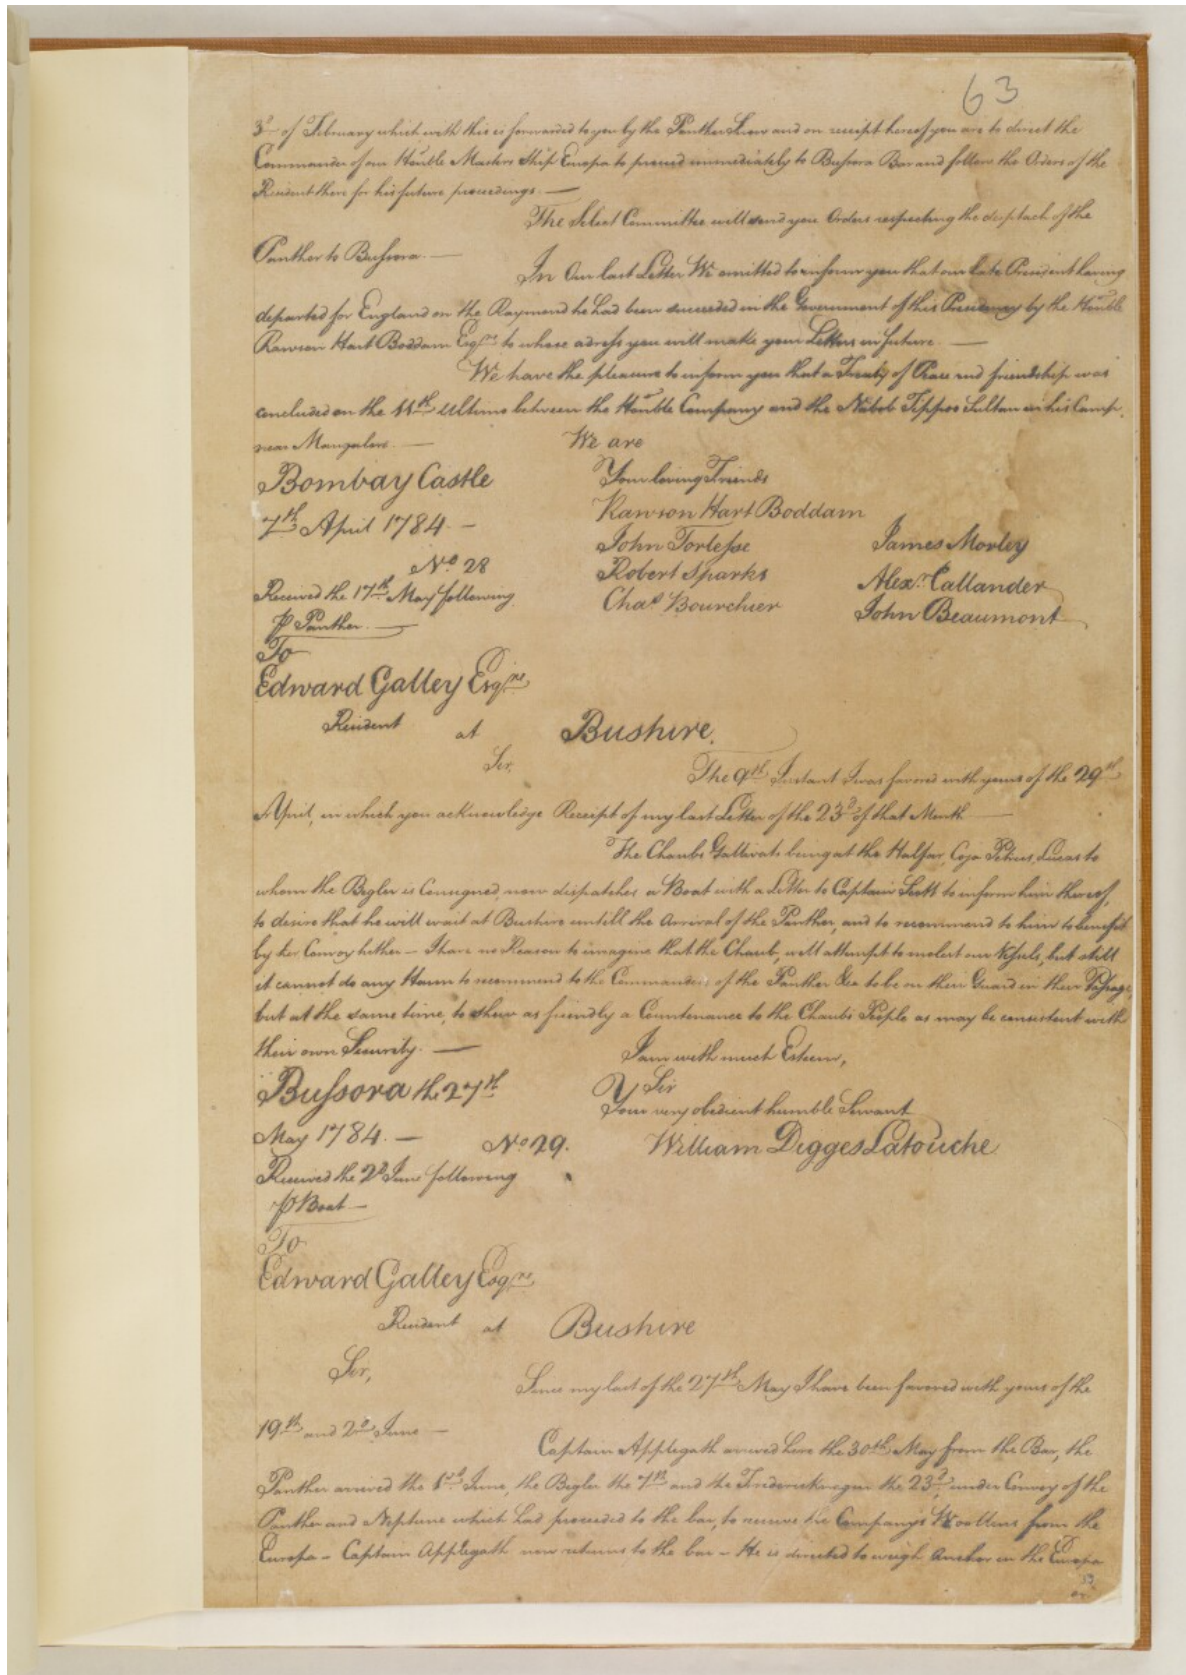 63
3d of February which with this is forwarded to you by the Panther Snow and on receipt hereof you are to direct the
Commander of our Honble Masters Ship Europa to proceed immediately to Bussora Bar and follow the Orders of the
Resident there for his future proceedings. —
The Select Committee will send you Orders respecting the dispatch of the
Panther to Bussora. —
In Our last Letter We omitted to inform you that our late President having
departed for England on the Raymond he had been succeeded in the Government of this Presidency by the Honble
Rawson Hart Boddam Esqre to whose adress you will make your Letters in future. —
We have the pleasure to inform you that a Treaty of Peace and friendship was
concluded on the 11th Ultimo between the Honble Company and the Nabob Tippoo Sultan in his Camp
near Mangalore. — We are
Bombay Castle Your loving Friends
7th April 1784. — Rawson Hart Boddam
John Torlesse James Morley
No 28 Robert Sparks Alexr Callander
Received the 17th May following Chas Bourchier John Beaumont
P Panther. —
To
Edward Galley Esqre
Resident at Bushire.
Sir, The 9th Instant I was favored with yours of the 29th
April, in which you acknowledge Receipt of my last Letter of the 23d of that Month —
The Chaubs Gallivats being at the Haffar, Coja Petrus, Lucas to
whom the Bigler is Consigned, now dispatches a Boat with a Letter to Captain Scott to inform him thereof,
to desire that he will wait at Bushire untill the Arrival of the Panther, and to recommend to him to benefit
by her Convoy hither — I have no Reason to imagine that the Chaub, will attempt to molest our Vessels, but still
it cannot do any Harm to recommend to the Commanders of the Panther &ca to be on their Guard in their Passage,
but at the same time, to shew as friendly a Countenance to the Chaubs People as may be consistent with
their own Security. — I am with much Esteem,
Bussora the 27th Sir
Your very obedient humble Servant
May 1784. — No 29. William Digges Latouche
Received the 2d June following
P Boat —
To
Edward Galley Esqre
Resident at Bushire
Sir, Since my last of the 27th May I have been favored with yours of the
19th and 2d June —
Captain Applegath arrived here the 30th May from the Bar, the
Panther arrived the 1st June, the Bigler the 7th and the Fredericknagur the 23d, under Convoy of the
Panther and Neptune which had proceeded to the bar, to receive the Company's Woollens from the
Europa — Captain Applegath now returns to the bar — He is directed to weigh Anchor in the Europa
or